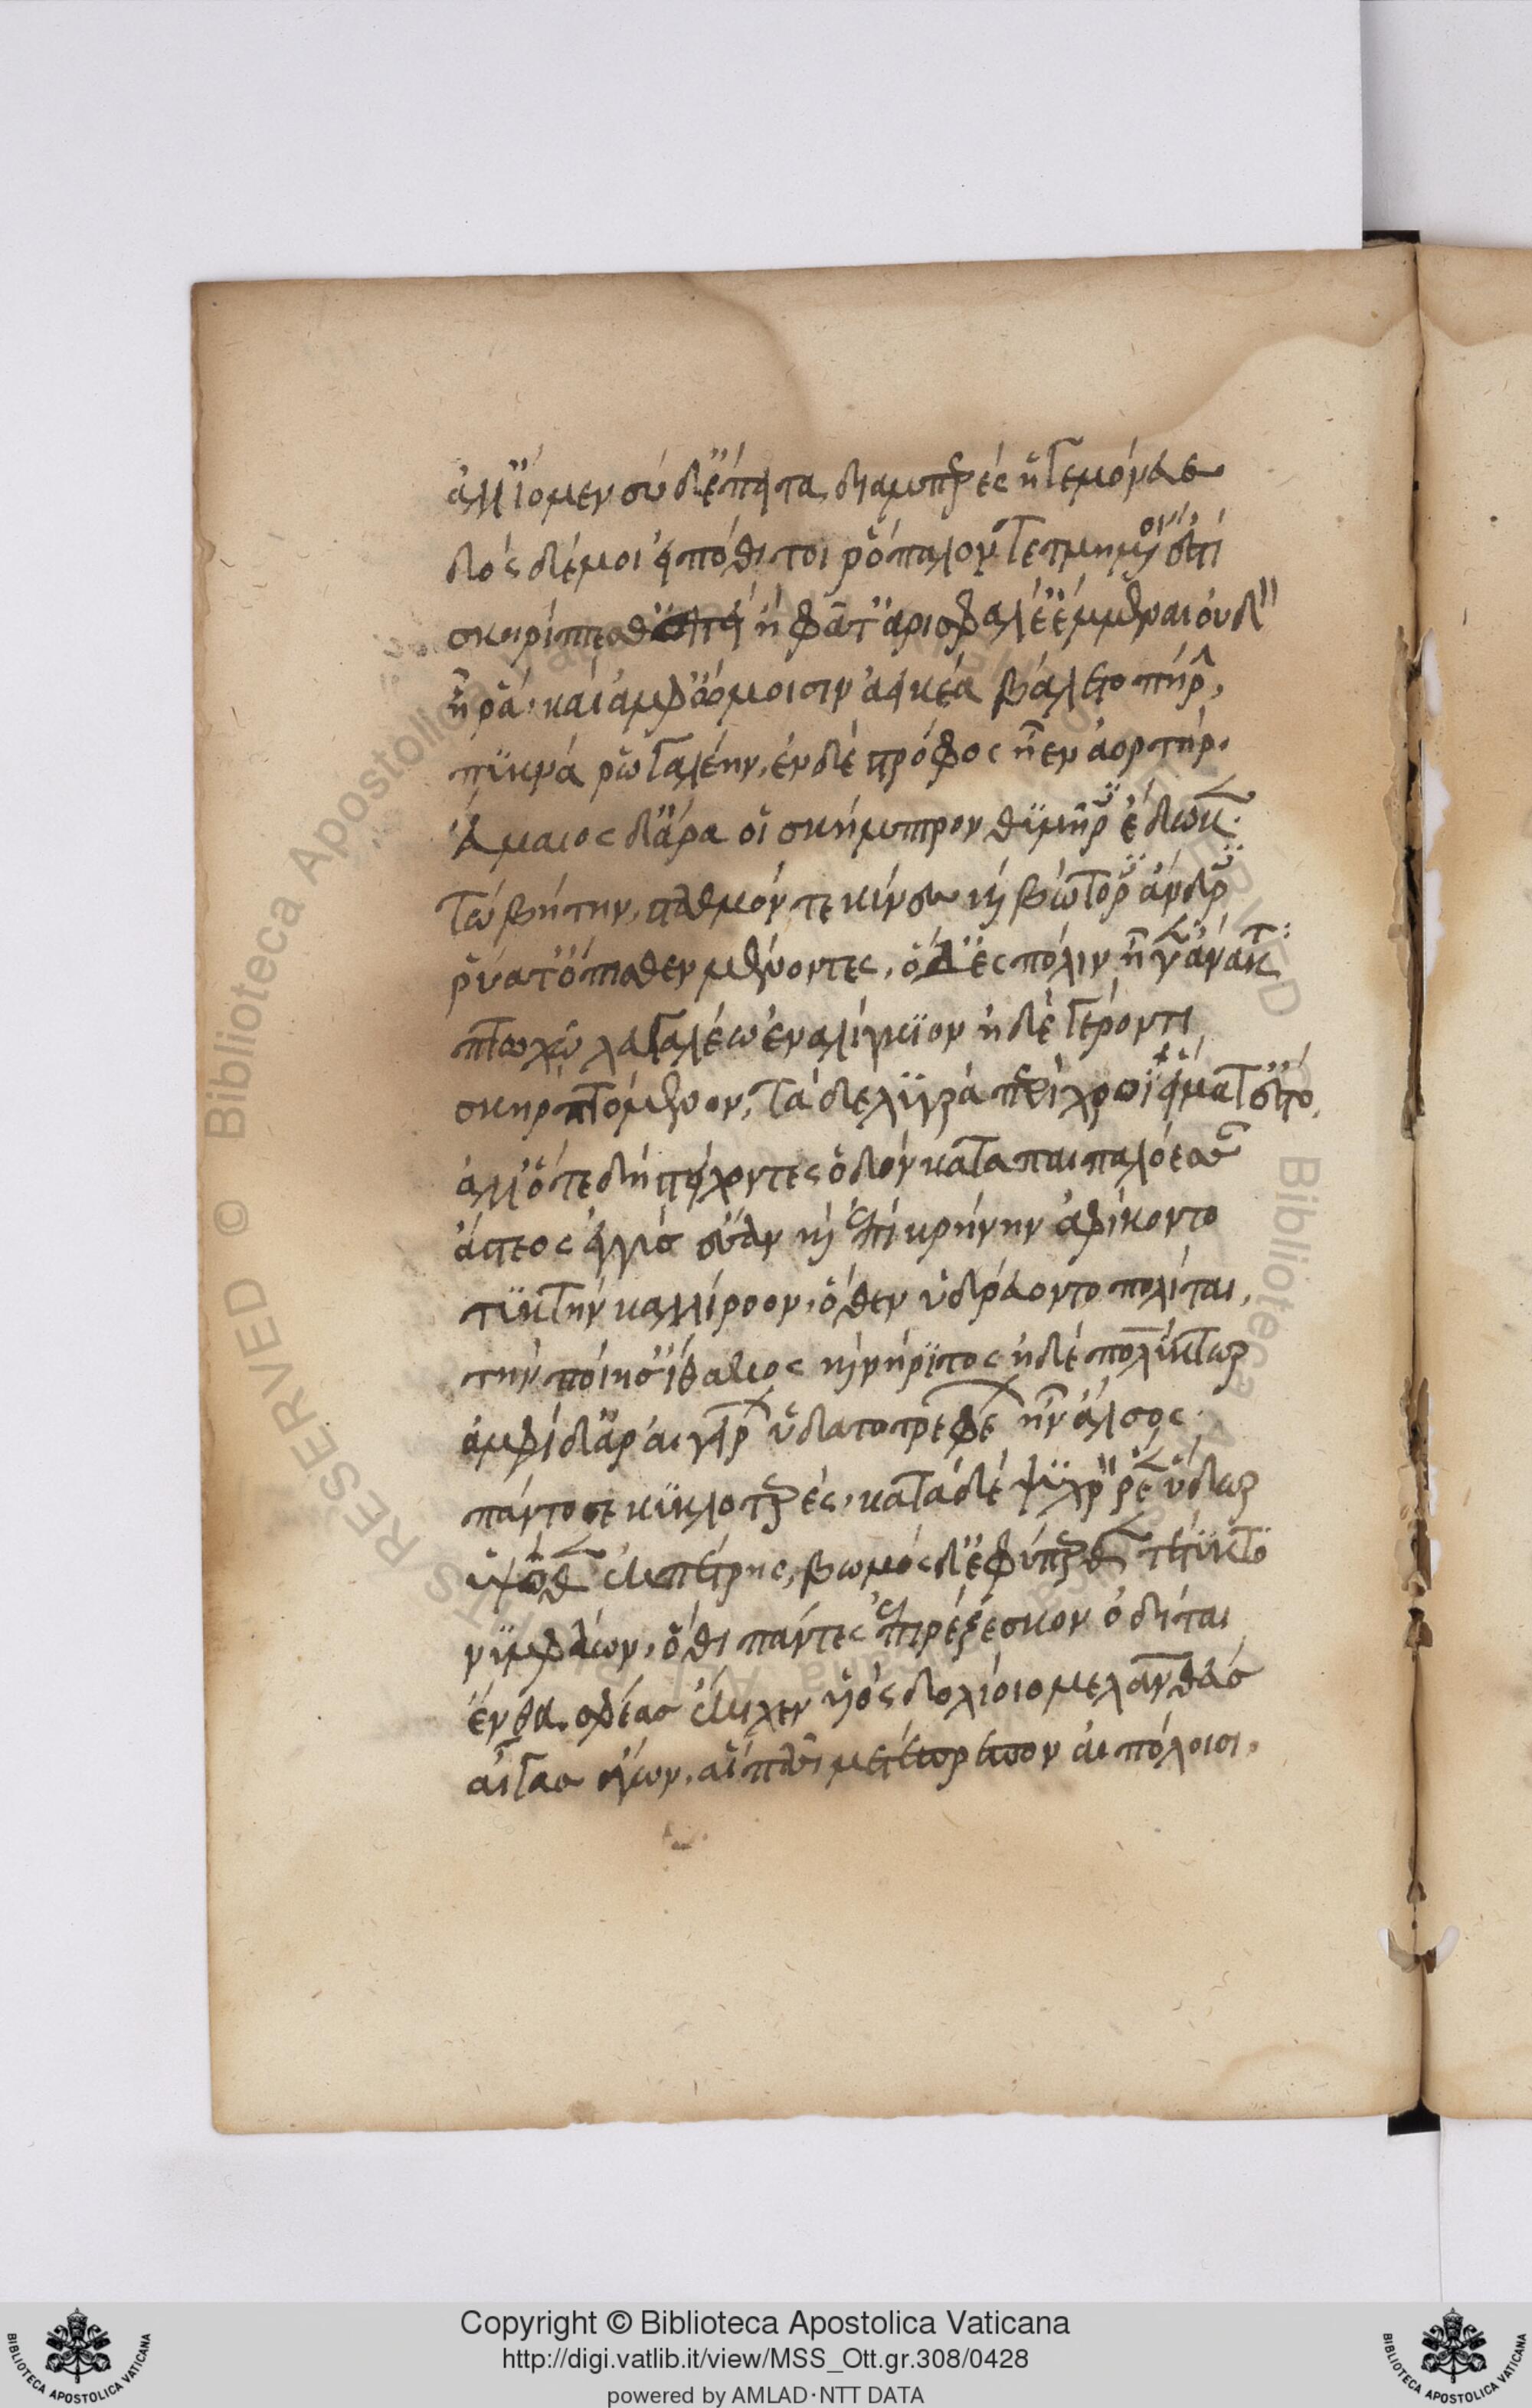 ἀλλ' ἴομεν σὺ δ' ἔπειτα διαμπερὲς ἡγεμόνευε
δὸς δέ μοι εἴ ποθί τοι ῥόπαλον τετμημένον ἐστί
σκηρίπτεσθ' ἐπειὴ φάτ' ἀρισφαλέ' ἔμμεναι οὐδ'
ἦ ῥα καὶ ἀμφ' ὤμοισιν ἀεικέα βάλετο πήρην
πυκνὰ ῥωγαλέην. ἐν δὲ στρόφος ἦεν ἀορτήρ.
Εὔμαιος δ' ἄρα οἱ σκήπτρον θυμῆρες ἔδωκε.
τὼ βήτην, σταθμὸν δὲ κύνες καὶ βώτορες ἄνδρες
ῥύατ' ὄπισθεν μένοντες. ὁ δ' ἐς πόλιν ἦγεν ἄνακτα
πτωχῷ λευγαλέῳ ἐναλίγκιον ἠδὲ γέροντι
σκηπτόμενον, τὰ δὲ λυγρὰ περὶ χροῒ εἵματα ἕστο,
ἀλλ' ὅτε δὴ στείχοντες ὁδὸν κατὰ παιπαλόεσσαν
ἄστεος ἐγγὺς ἔσαν καὶ ἐπὶ κρήνην ἀφίκοντο
τυκτὴν καλλίροον, ὅθεν ὑδρεύοντο πολῖται,
τὴν ποίησ' Ἴθακος καὶ Νήριτος ἠδὲ Πολύκτωρ
ἀμφὶ δ' ἄρ' αἰγείρων ὑδατοτρεφέων ἦν ἄλσος.
πάντοσε κυκλοτερὲς, κατὰ δὲ ψυχρὸν ῥέεν ὕδωρ
ὑψόθεν ἐκ πέτρης, βωμὸς δ' ἐφύπερθε τέτυκτο
νυμφάων, ὅθι πάντες ἐπιρέζεσκον ὁδῖται
ἔνθα σφέας ἔκιχεν υἱὸς Δολίοιο Μελανθεύς
αἶγας ἄγων, αἳ πᾶσι μετέπρεπον αἰπολίοισι.
Copyright © Biblioteca Apostolica Vaticana
http://digi.vatlib.it/view/MSS_Ott.gr.308/0428
powered by AMLAD·NTT DATA